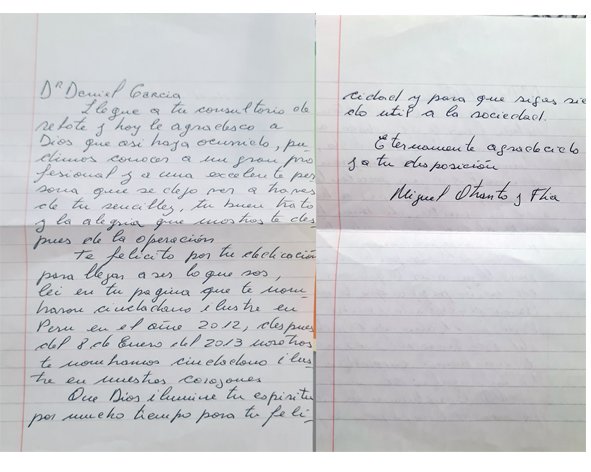 Dr Daniel Garcia
Llegue a tu consultorio de
rebote y hoy le agradesco a
Dios que asi haya ocurrido, pu-
dimos conocer a un gran pro
fesional y a una excelente per
sona que se dejo ver a traves
de tu sencilles, tu buen trato
y la alegria que mostraste des
pues de la operación
Te felicito por tu dedicación
para llegar a ser lo que sos,
lei en tu pagina que te nom-
braron ciudadano ilustre en
Peru en el año 2012, despues
del 8 de Enero del 2013 nosotros
te nombramos ciudadano ilus
tre en nuestros corazones
Que Dios ilumine tu espiritu
por mucho tiempo para tu feli-
cidad y para que sigas sien
do util a la sociedad.
Eternamente agradecido
y a tu disposición
Miguel Otranto y Flia